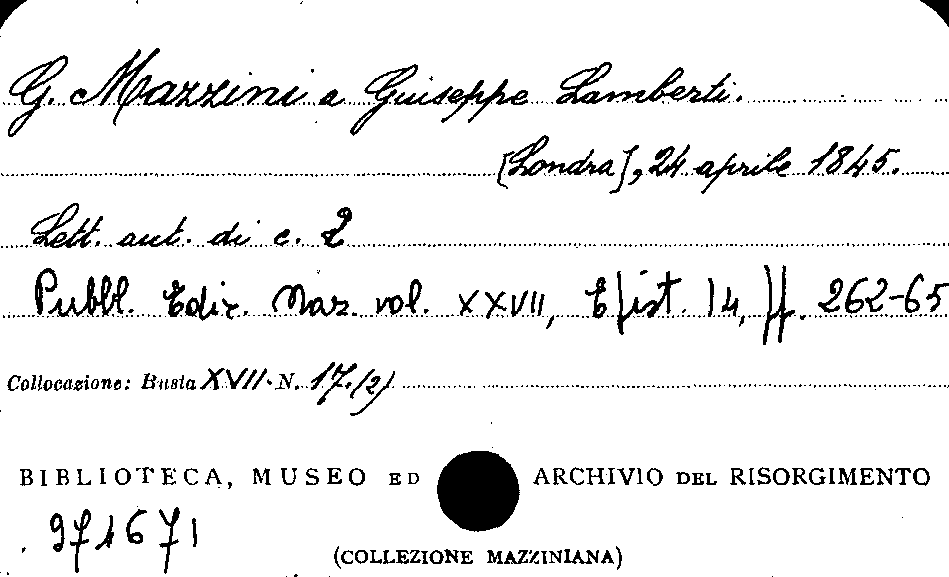 G. Mazzini a Giuseppe Lamberti.
[Londra], 24 aprile 1845.
Lett. aut. di c. 2
Pubbl. Ediz. Naz. vol. XXVII, Epist. 14, pp. 262-65
Collocazione: Busta XVII. N. 17.(2)
BIBLIOTECA, MUSEO ED ARCHIVIO DEL RISORGIMENTO
971671
(COLLEZIONE MAZZINIANA)